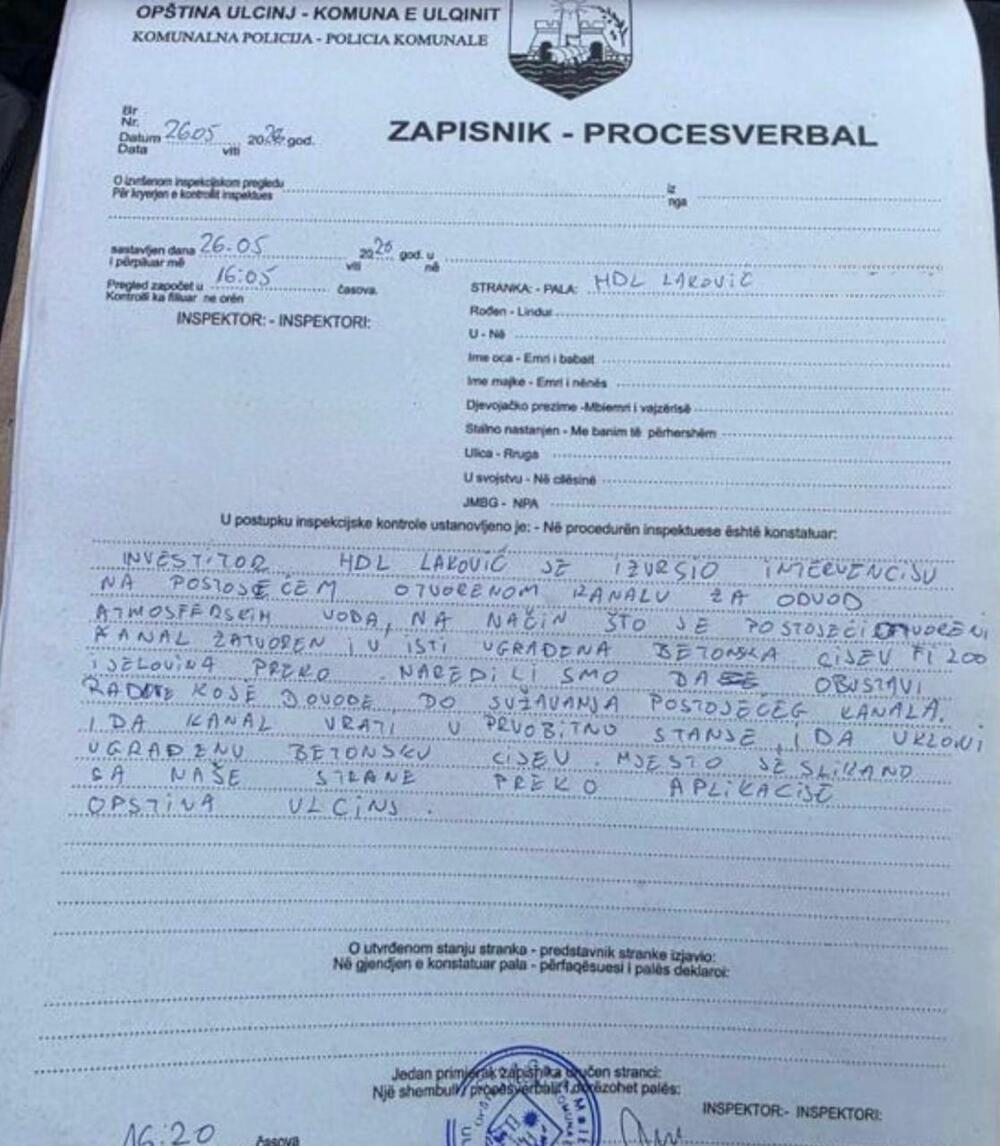 OPŠTINA ULCINJ - KOMUNA E ULQINIT
KOMUNALNA POLICIJA - POLICIA KOMUNALE
Br
Nr.
Datum 26.05 20 god.
Data viti
ZAPISNIK - PROCESVERBAL
O izvršenom inspekcijskom pregledu iz
Për kryerjen e kontrollit inspektues nga
sastavljen dana 26.05 2026 god. u
i përpiluar më viti në
Pregled započet u 16:05 časova.
Kontrolli ka filluar ne orën
INSPEKTOR: - INSPEKTORI:
STRANKA: - PALA: HDL LAKOVIĆ
Rođen - Lindur
U - Në
Ime oca - Emri i babait
Ime majke - Emri i nënës
Djevojačko prezime -Mbiemri i vajzërisë
Stalno nastanjen - Me banim të përhershëm
Ulica - Rruga
U svojstvu - Në cilësinë
JMBG - NPA
U postupku inspekcijske kontrole ustanovljeno je: - Në procedurën inspektuese është konstatuar:
INVESTITOR HDL LAKOVIĆ JE IZVRSIO INTERVENCIJU
NA POSTOJEĆEM OTVORENOM KANALU ZA ODVOD
ATMOSFERSKIH VODA, NA NAČIN ŠTO JE POSTOJEĆI OTVORENI
KANAL ZATVOREN I U ISTI UGRAĐENA BETONSKA CIJEV FI 200
I JELOVINA PREKO. NAREDILI SMO DA OBUSTAVI
RADOVE KOJE DOVODE DO SUŽAVANJA POSTOJEĆEG KANALA.
I DA KANAL VRATI U PRVOBITNO STANJE, I DA UKLONI
UGRAĐENU BETONSKU CIJEV. MJESTO JE SLIKANO
SA NAŠE STRANE PREKO APLIKACIJE
OPSTINA ULCINJ.
O utvrđenom stanju stranka - predstavnik stranke izjavio:
Në gjendjen e konstatuar pala - përfaqësuesi i palës deklaroi:
Jedan primjerak zapisnika uručen stranci:
Një shembull i procesverbalit i dorëzohet palës:
INSPEKTOR:- INSPEKTORI:
16:20 časova